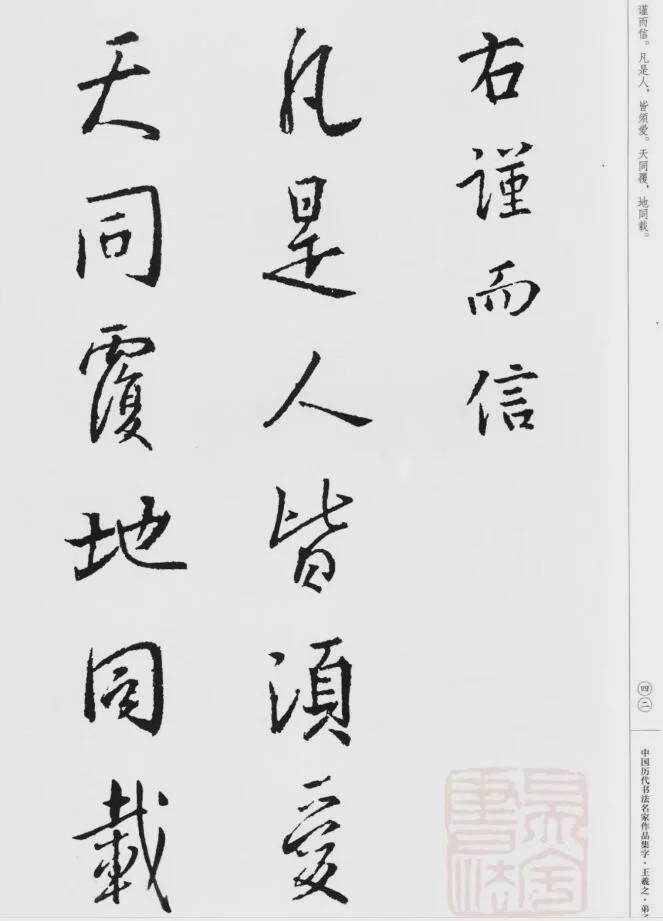 谨而信。凡是人，皆須愛。天同覆，地同载。
四二
中国历代书法名家作品集字·王羲之·弟
右謹而信
凡是人皆須愛
天同覆地同載